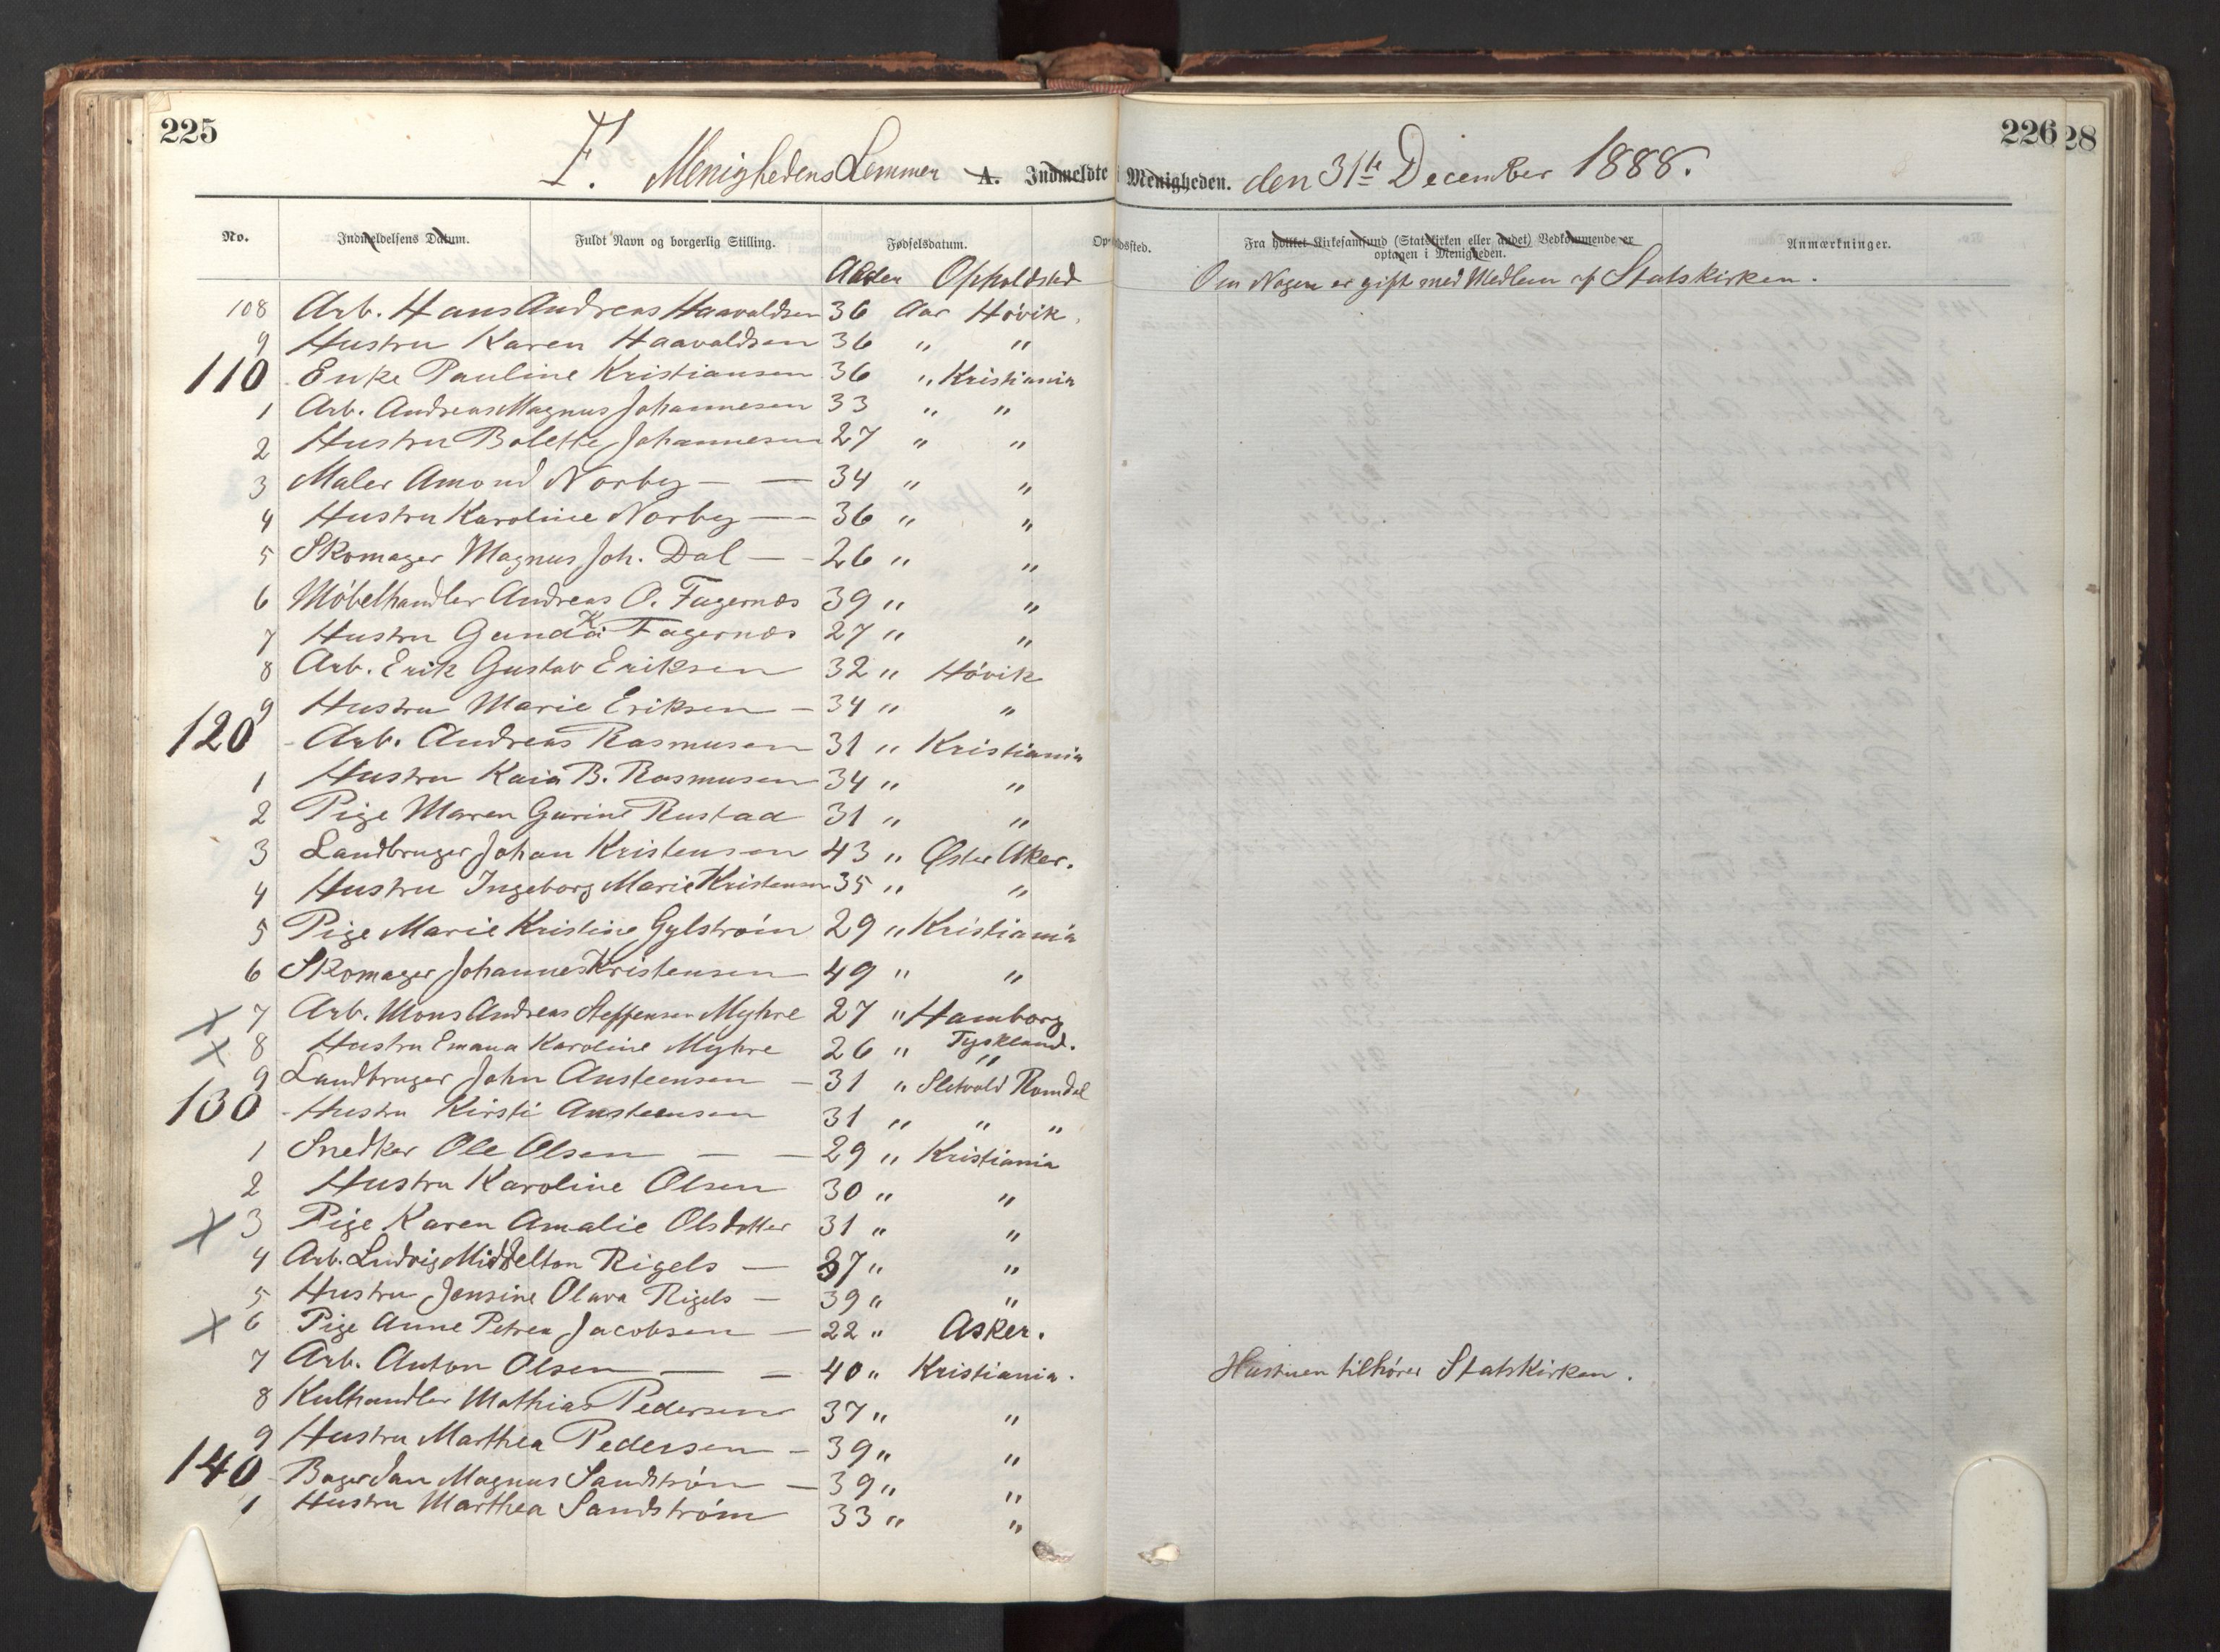 225
226
28
F. Menighedens Lemmer A. Indmeldte i Menigheden. den 31te December 1888.
No. Indmeldelsens Datum. Fuldt Navn og borgerlig Stilling. Fødselsdatum. Opholdssted. Fra hvilket Kirkesamfund (Statskirken eller andet) Vedkommende er optagen i Menigheden. Anmærkninger.
Alder Opholdsted Om Nogen er gift med Medlem af Statskirken.
108 Arb. Hans Andreas Haavaldsen 36 Aar Høvik.
9 Hustru Karen Haavaldsen 36 " "
110 Enke Pauline Kristiansen 36 " Kristiania
1 Arb. Andreas Magnus Johannesen 33 " "
2 Hustru Bolette Johannesen 27 " "
3 Maler Amond Norby — — 34 " "
4 Hustru Karoline Norby — — 36 " "
5 Skomager Magnus Joh. Dal — - 26 " "
6 Møbelhandler Andreas O. Fagernæs 39 " "
7 Hustru Gunda K Fagernæs 27 " "
8 Arb. Erik Gustav Eriksen 32 " Høvik
9 Hustru Marie Eriksen — 34 " "
120 - Arb. Andreas Rasmusen 31 " Kristiania
1 Hustru Kaia B. Rasmusen 34 " "
2 Pige Maren Gurine Rustad 31 " "
3 Landbruger Johan Kristensen 43 " Øster Aker.
4 Hustru Ingeborg Marie Kristensen 35 " "
5 Pige Marie Kristine Gylstrøm 29 " Kristiania
6 Skomager Johannes Kristensen 49 " "
X 7 Arb. Mons Andreas Steffensen Myhre 27 " Hamborg Tyskland.
X 8 Hustru Emana Karoline Myhre 26 " "
9 Landbruger John Austeensen — 31 " Sletvold Romdal
130 - Hustru Kirsti Austeensen 31 " " "
1 Snedker Ole Olsen — — 29 " Kristiania
2 Hustru Karoline Olsen 30 " "
X 3 Pige Karen Amalie Olsdatter 31 " "
4 Arb. Ludvig Middelton Rigels — 37 " "
5 Hustru Jensine Olava Rigels — 39 " "
X 6 Pige Anne Petrea Jacobsen — 22 " Asker.
7 Arb. Anton Olsen — — 40 " Kristiania. Hustruen tilhører Statskirken.
8 Kulhandler Mathias Pedersen 37 " "
9 Hustru Marthea Pedersen — 39 " "
140 - Bager Jan Magnus Sandstrøm — 39 " "
1 Hustru Marthea Sandstrøm 33 " "